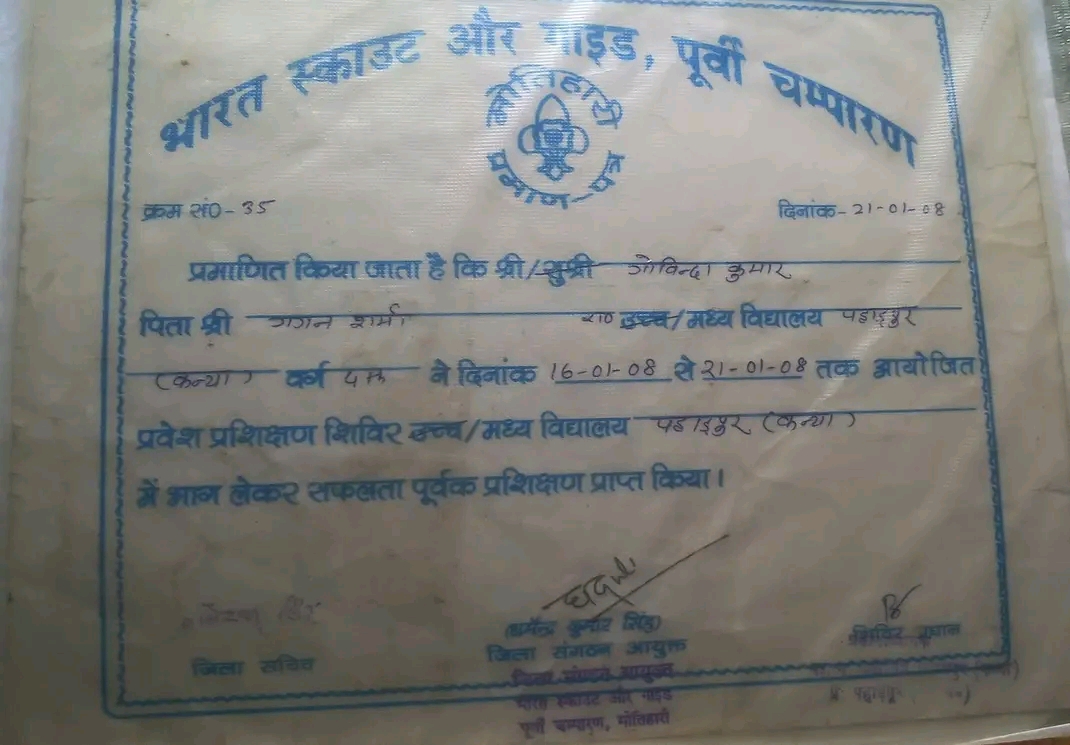 भारत स्काउट और गाइड, पूर्वी चम्पारण
मोतिहारी
प्रमाण-पत्र
क्रम सं0- 35
दिनांक- 21-01-08
प्रमाणित किया जाता है कि श्री/सुश्री गोविन्दा कुमार
पिता श्री गगन शर्मा रा0 उच्च/मध्य विद्यालय पहाड़पुर
(कन्या) वर्ग ने दिनांक 16-01-08 से 21-01-08 तक आयोजित
प्रवेश प्रशिक्षण शिविर उच्च/मध्य विद्यालय पहाड़पुर (कन्या)
में भाग लेकर सफलता पूर्वक प्रशिक्षण प्राप्त किया।
(धर्मेन्द्र कुमार सिंह)
जिला सचिव
जिला संगठन आयुक्त
शिविर प्रधान
जिला संगठन आयुक्त
भारत स्काउट और गाइड
पूर्वी चम्पारण, मोतिहारी